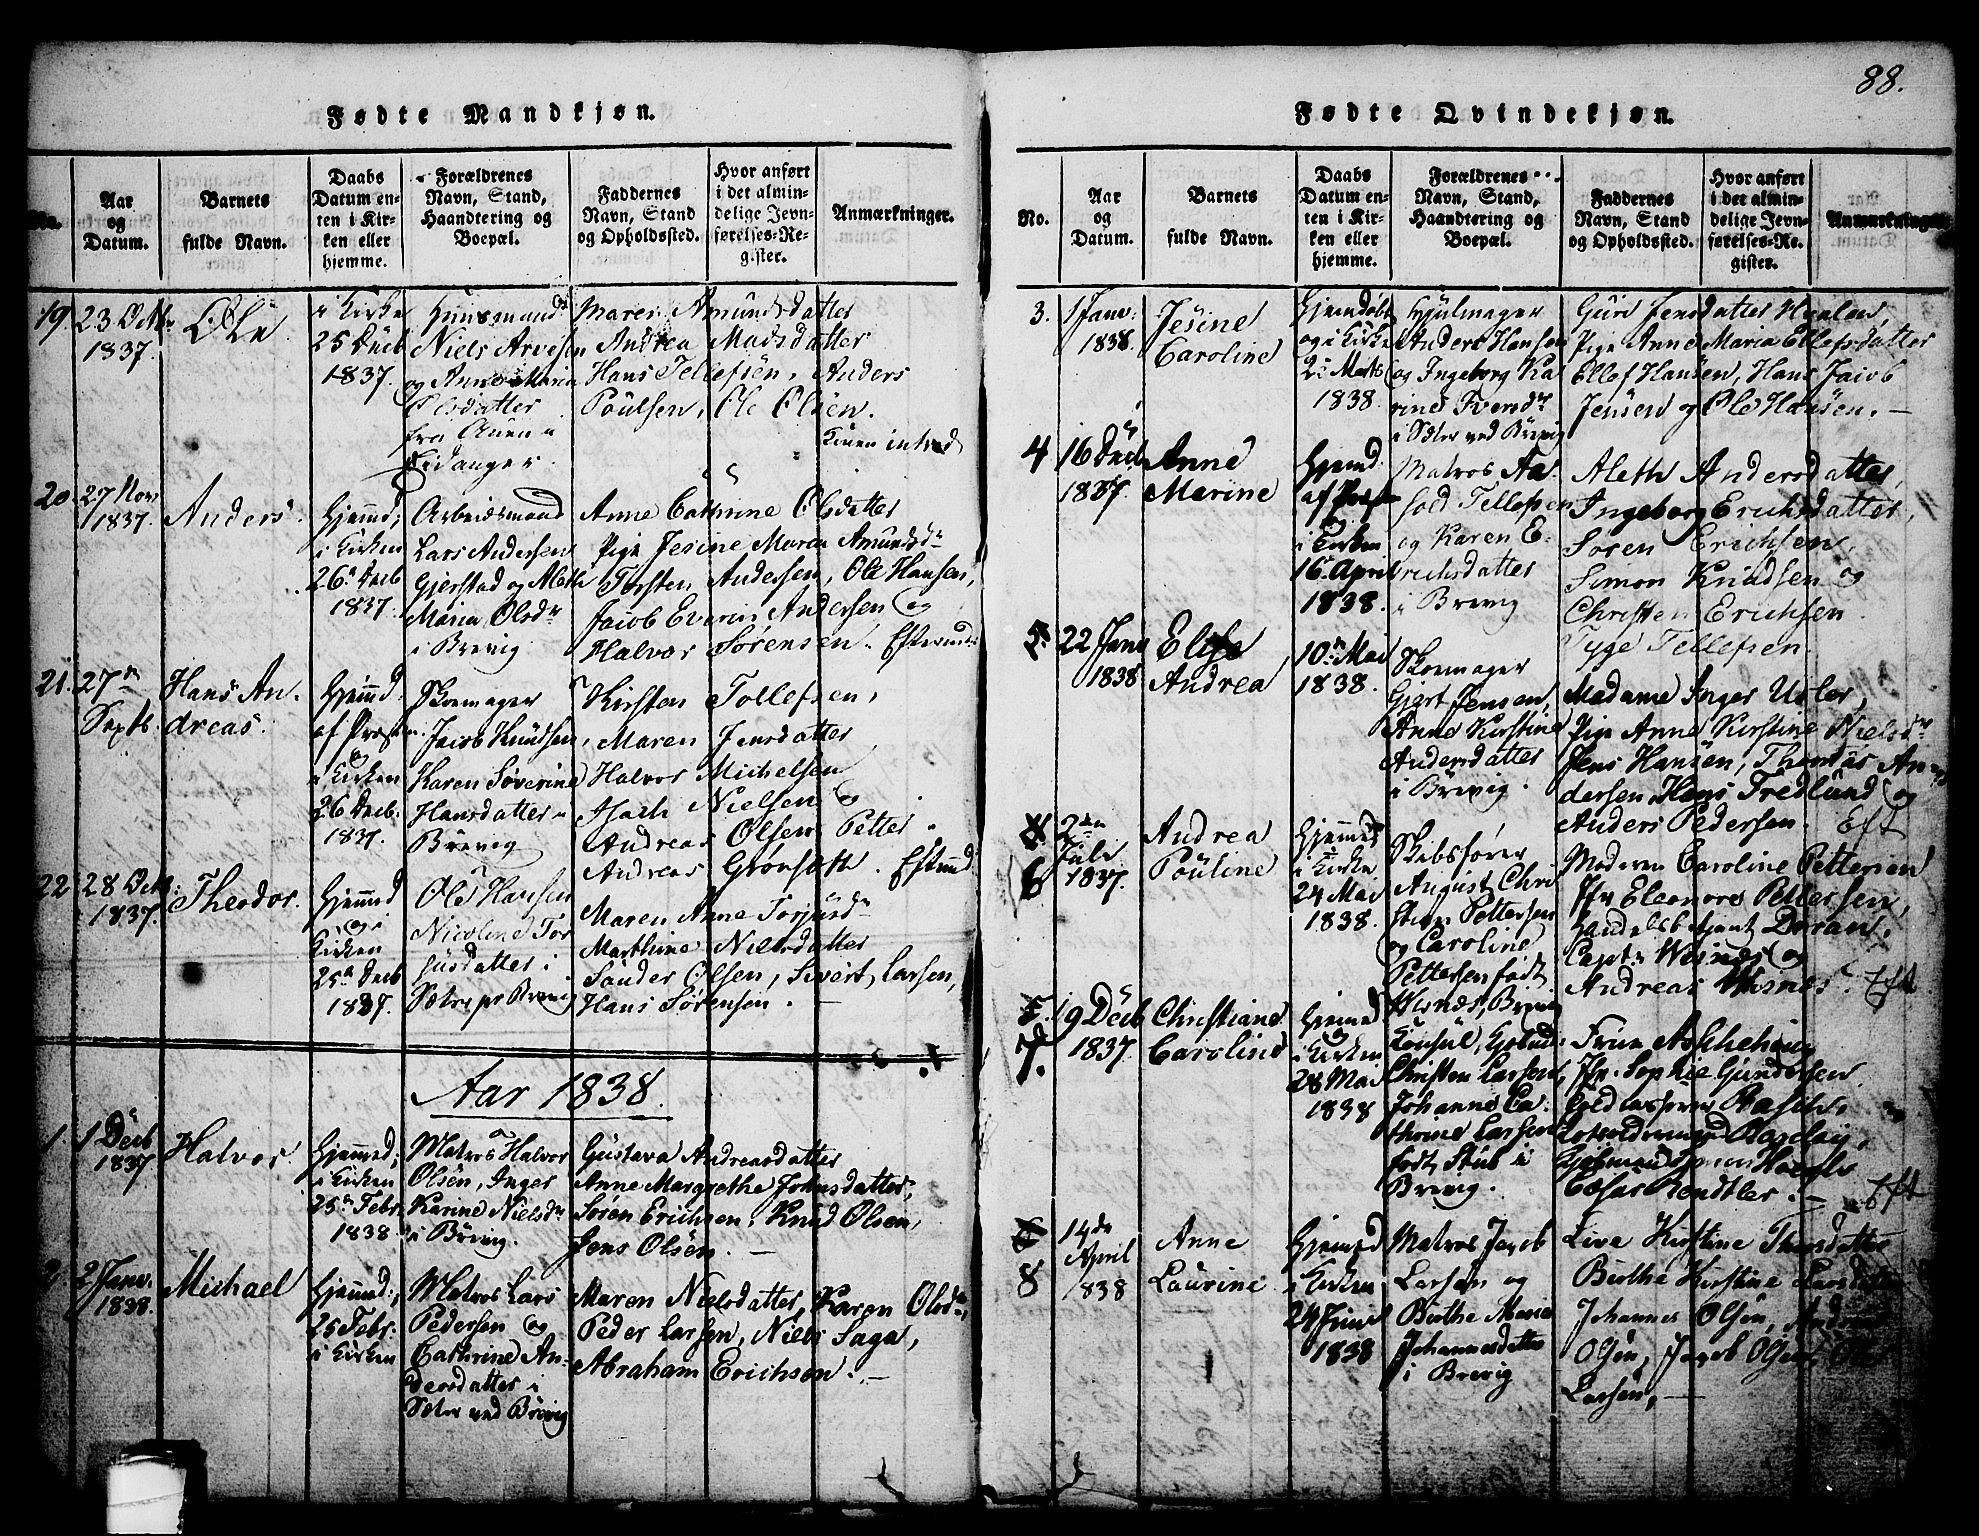 88.
Fødte Mandkjøn.
No.
Aar
og
Datum.
Barnets
fulde Navn.
Daabs
Datum en-
ten i Kir-
ken eller
hjemme.
Forældrenes
Navn, Stand,
Haandtering og
Boepæl.
Faddernes
Navn, Stand
og Opholdssted.
Hvor anført
i det almin-
delige Jevn-
førelses-Re-
gister.
Anmærkninger.
19
23 Octbr
1837.
Ole
i Kirke
25 Decb
1837.
Huusmand
Niels Arvesen
og Anne Maria
Olsdatter
fra Auen i
Eidanger.
Maren Amundsdatter
Andrea Madsdatter
Hans Tellefsen, Anders
Poulsen, Ole Olsen.
20
27 Nov
1837.
Anders.
Hjemmed;
i Kirken
26de Decb
1837.
Arbeidsmand
Lars Andersen
Gjerstad og Aleth
Maria Olsdr
i Brevig
Anne Cathrine Olsdatter
Pige Jesine Maren Amundsdr
Torsten Andersen, Ole Hansen,
Jacob Everin Andersen og
Halvor Sørensen.
21.
27de
Septb.
Hans An-
dreas.
Hjemmd.
af Præsten
i Kirken
26 Decb.
1837.
Skomager
Jacob Knudsen,
Karen Severine
Hansdatter i
Brevig
Kirsten Tollefsen,
Maren Jensdatter,
Halvor Michelsen
Isach Nielsen og
Andreas Olsen, Petter
Andreas Grønsæth.
22
28 Octb:
1837.
Theodor.
Hjemmed
og i
Kirken
25de Decb
1837.
Ole Hansen
Nicoline Tor
jusdatter i
Sætre pr Brevig
Maren Anne Torjusdr
Marthine Nielsdatter
Sander Olsen, Sivert Larsen,
Hans Sørensen.
Aar 1838.
1
1 Decb
1837
Halvor.
Hjemmed;
i Kirken
25de Febr.
1838.
Matros Halvor
Olsen, Inger
Karine Nielsdr
i Brevig.
Gustava Andreasdatter
Anne Margrethe Johnsdatter,
Søren Erichsen, Knud Olsen,
Jens Olsen. —
2
2 Janv.
1838.
Michael
Hjemmed;
25 Febr:
i Kirken
Matros Lars
Pedersen og
Cathrine An-
dersdatter i
Sætre ved Brevig
Maren Nielsdatter, Karen Olsdr,
Peder Larsen, Niels Saga,
Abraham Erichsen. —
Fødte Qvindekjøn.
No.
Aar
og
Datum.
Barnets
fulde Navn.
Daabs
Datum en-
ten i Kir-
ken eller
hjemme.
Forældrenes
Navn, Stand,
Haandtering og
Boepæl.
Faddernes
Navn, Stand
og Opholdssted.
Hvor anført
i det almin-
delige Jevn-
førelses-Re-
gister.
Anmærkninger.
3.
1 Janv:
1838.
Jesine
Caroline
Hjemdøbt
og i Kirke
Marts
1838.
Hjulmager
Anders Hansen
og Ingeborg Ka
rine Iversdr
i Sætre ved Brevig
Guri Jensdatter
Pige Anne Maria Ellefsdatter
Ellef Hansen, Hans Jacob
Jensen og Ole Hansen. —
4
16 Decb
1837.
Anne
Marine
Hjemd.
af Præst
og
i Kirken
16. April
1838.
Matros Aa-
sold Tellefsen
og Karen E-
richsdatter
i Brevig
Aleth Andersdatter,
Ingeborg Erichsdatter,
Søren Erichsen,
Simon Knudsen og
Christen Erichsen.
Tyge Tellefsen.
5
22 Janv
1838
Elise
Andrea
10de Mai
1838.
Skomager
Gjert Jensen,
Anne Kirstine
Andersdatter
i Brevig.
Madame Inger
Pige Anne Kirstine Nielsdr
Jens Hansen, Thomas An-
dersen Hans Fredlund og
Anders Pedersen. Eft
6
2den
Juli
1837.
Andrea
Pouline
Hjemmed
i Kirke
24 Mai
1838.
Skibsfører
August Chri
stian Pettersen
og Caroline
Pettersen født
Wisnes, Brevig
Moderen Caroline Pettersen
Jfr Eleonore Pettersen,
Handelsbetjent Doran,
Capt: Wisnes og
Andreas Wisnes. Eft
7.
19 Decb
1837.
Christiane
Caroline
Hjemmed
i Kirken
28 Mai
1838
Konsul,
Christen Larsen,
Johanne Ca-
thrine Larsen
født Stub i
Brevig.
Fruen
Jfr. Sophie Gundersen
Cæsar — Eft
8
14de
April
1838
Anne
Laurine
Hjemmed
i Kirken
24 Juni
1838
Matros Jacob
Larsen og
Birthe Marie
Johannesdatter
i Brevig
Live Kirstine
Birthe Kirstine Larsdatter
Johannes Olsen,
Olsen, Jacob Olsen, Ole
Larsen, —